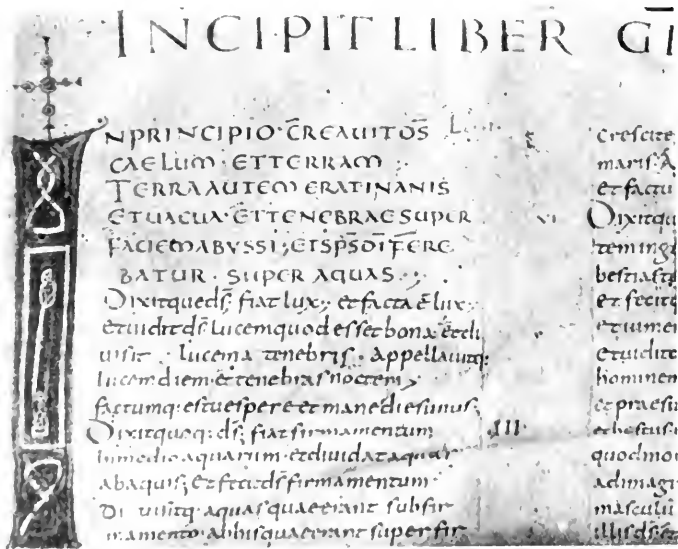 INCIPIT LIBER GĪ
IN PRINCIPIO · C̄REAUIT D̄S
CAELUM · ET TERRAM
TERRA AUTEM ERAT INANIS
ET UACUA · ET TENEBRAE SUPER
FACIEM ABYSSI; ET SP̄S DĪ FERE
BATUR · SUPER AQUAS
Dixitque ds̄ fiat lux; et facta ē lux;
et uidit ds̄ lucem quod esset bona et di
uisit lucem a tenebris · Appellauitq:
lucem diem et tenebras noctem;
factumq: est uespere et mane dies unus;
Dixit quoq: ds̄; fiat firmamentum
in medio aquarum et diuidat aquas
ab aquis; et fecit ds̄ firmamentum
Diuisitq aquas quae erant sub fir
mamento ab his quae erant super fir
VI
III
Crescite
maris A
et factu
Dixitqu
tem in g
bestias t
et fecit q
et iumen
et uidit
hominem
et praesi
et bestiis
quod mo
ad imagi
masculu
illis ds̄ et